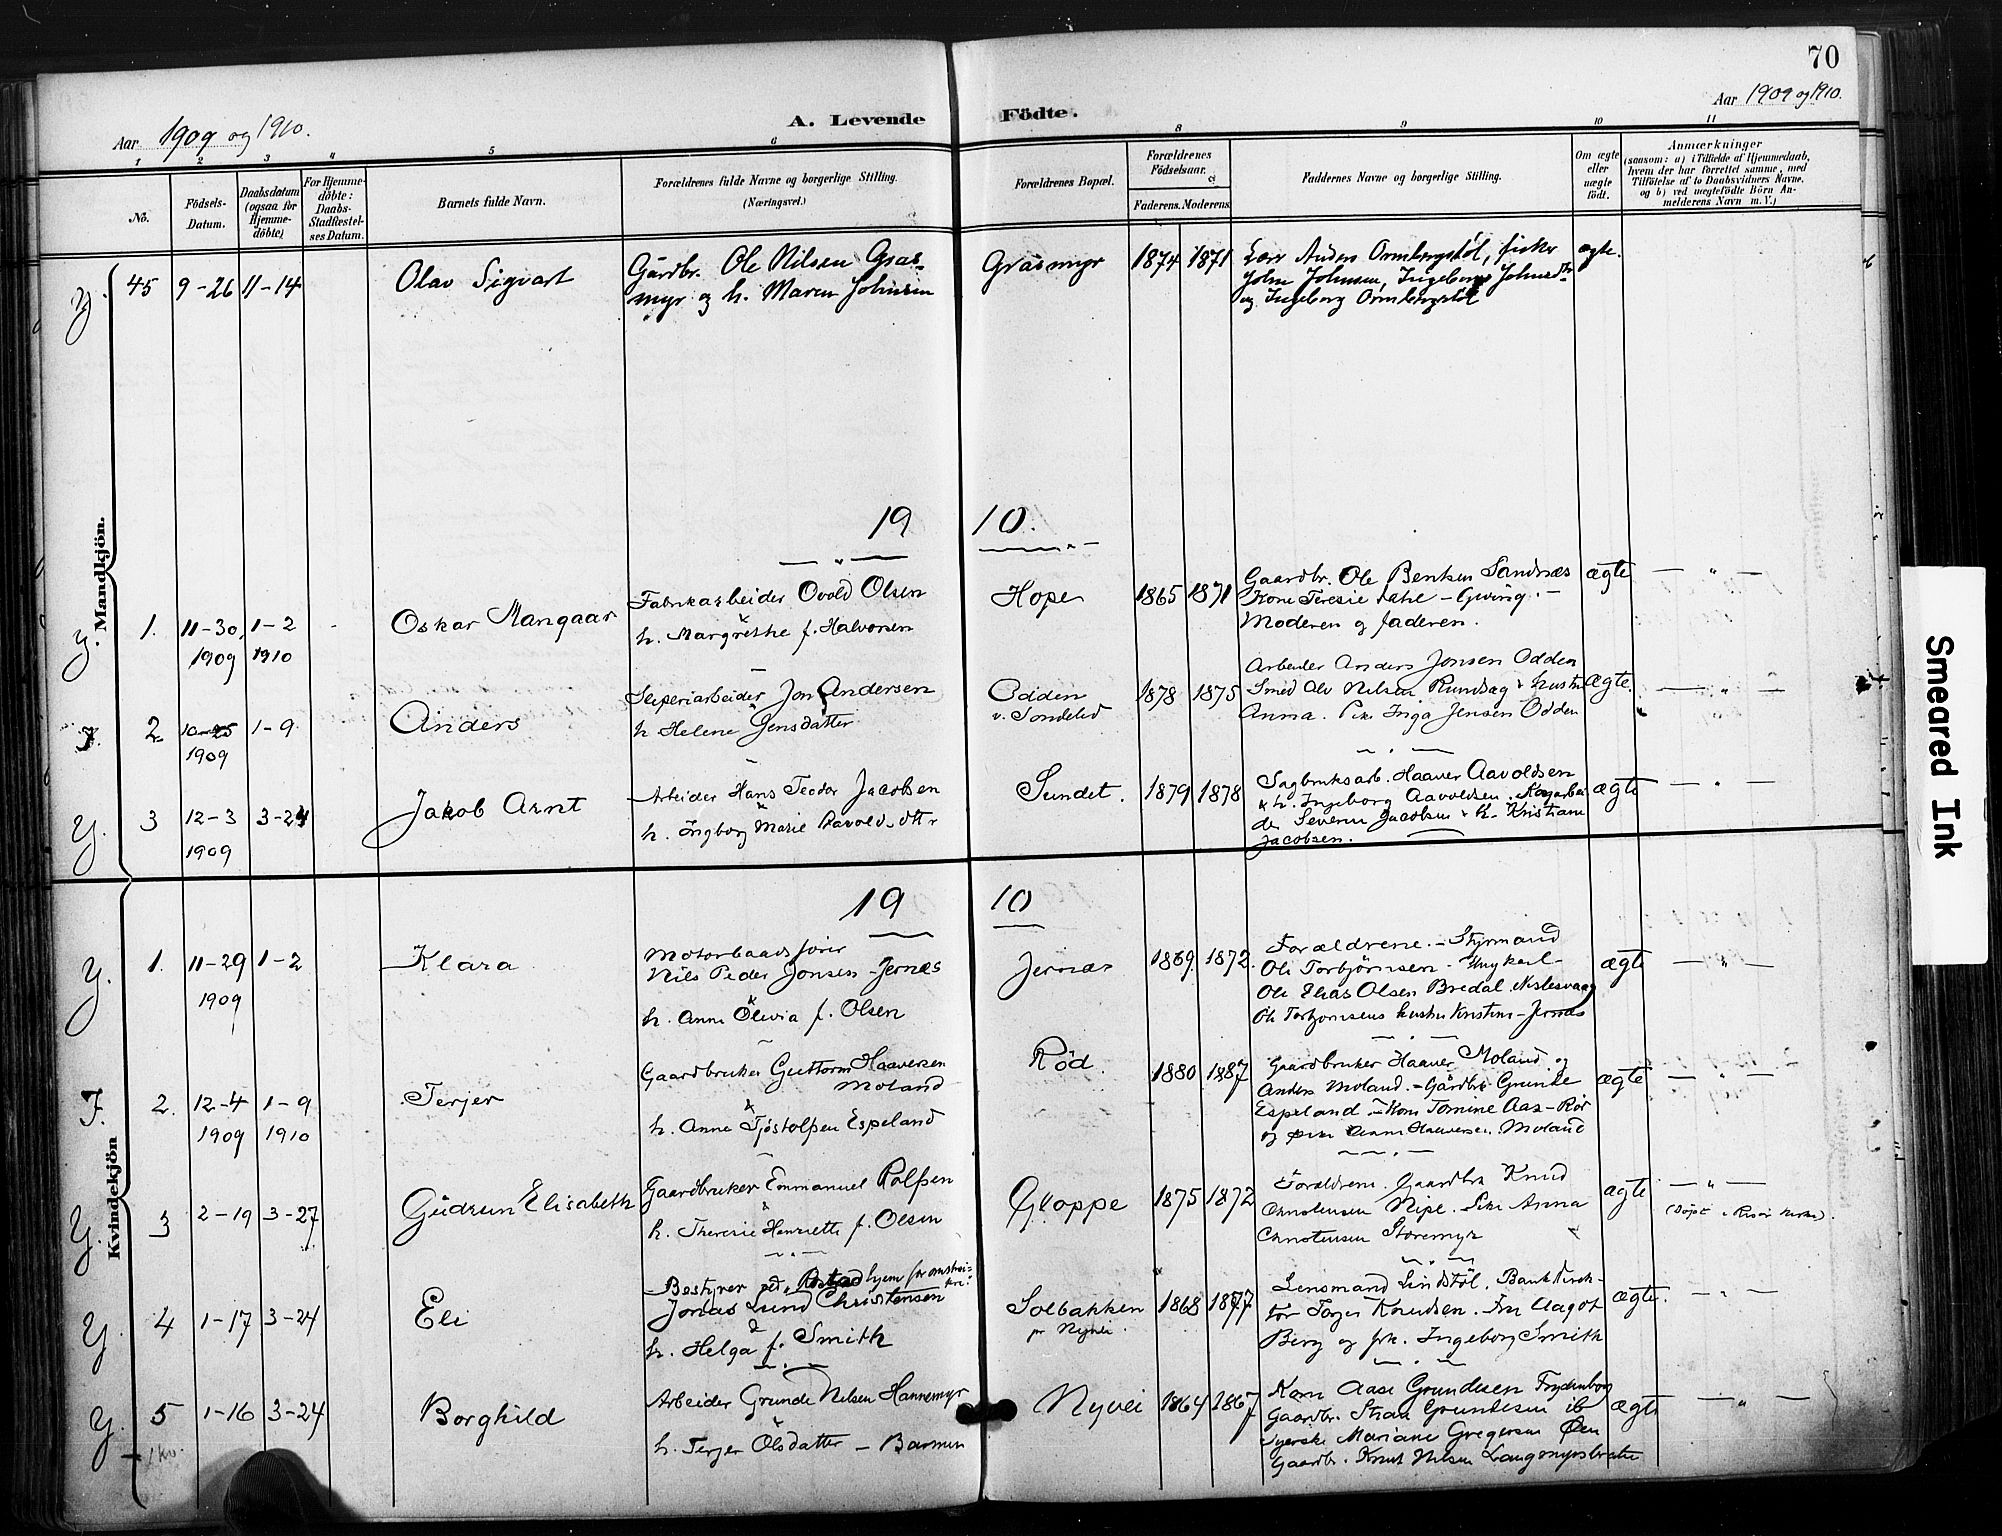 70
Aar 1909 og 1910.
A. Levende Födte.
Aar 1909 og 1910.
1 2 3 4 5 6 8 9 10 11
No.
Födsels-Datum.
Daabsdatum (ogsaa for Hjemme-döbte)
For Hjemme-döbte: Daabs-Stadfæstel-ses Datum.
Barnets fulde Navn.
Forældrenes fulde Navne og borgerlige Stilling.
(Næringsvei.)
Forældrenes Bopæl.
Forældrenes Födselsaar.
Faderens. Moderens.
Faddernes Navne og borgerlige Stilling.
Om ægte eller uægte födt.
Anmærkninger
(saasom: a) i Tilfælde af Hjemmedaab,
hvem der har forrettet samme, med
Tilföielse af to Daabsvidners Navne.
og b) ved uegtefödte Börn An-
melderens Navn m. V.)
Mandkjön.
Y. 45 9-26 11-14 Olav Sigvart
Gårdbr. Ole Nilsen Gras-
myr og h. Maren Johnsen
Grasmyr 1874 1871
Anders Ormbergstöl, fisker
John Johnsen, Ingeborg
og Ingeborg Ormbergstöl
ægte.
19 10.
Y. 1. 11-30, 1909 1-2 1910 Oskar Mangaar
Fabrikarbeider Ovald Olsen
h. Margrethe f. Halvorsen
Hope 1865 1871
Gaardbr. Ole Bentsen Sandnæs
Kone Teresie Dahl - Gwing. -
Moderen og faderen.
ægte — " —
2. 10-25 1909 1-9 Anders
Sliperiarbeider Jon Andersen
h Helene Jensdatter
Odden
v. Söndeled
1878 1875
Arbeider Anders Jonsen Odden
Smed Ole Nilsen
Anna. Pike Inga Jensen Odden
ægte. — " —
Y. 3 12-3 1909 3-24 Jakob Arnt
Arbeider Hans Teodor Jacobsen
h. Ingborg Marie
Sundet. 1879 1878
Sagbruksarb. Haaver Aavoldsen
& h. Ingeborg Aavoldsen.
Severin Jacobsen & h. Kristiane
Jacobsen.
ægte — " —
Kvindekjön
19 10
Y. 1. 11-29 1909 1-2 Klara
Motorbaadsfører
Nils Peder Jonsen - Jernæs
h. Anne Olevia f. Olsen
Jernæs 1869. 1872.
Forældrene. - Styrmand
Ole Torbjörnsen - Ungkarl -
Ole Elias Olsen Bredal
Ole Torbjornsens hustru Kristine - Jernæs
ægte — " —
2. 12-4 1909 1-9 1910 Terjer
Gaardbruker Guttorm Haaversen
Moland
h. Anne Tjöstolfsen Espeland
Röd. 1880 1887
Gaardbruker Haaver Moland og
Anders Moland. - Gårdbr. Grunde
Espeland - Kone Tomine Aas - Röd
og pike Anne Haaversen Moland
ægte — " —
Y. 3 2-19 3-27 Gudrun Elisabeth
Gaardbruker Emmanuel Rolfsen
h. Theresie Henriette f. Olsen
Gloppe 1875 1872
Forældrene. Gaardbr. Knud
Christensen Nipe. Pike Anna
Christensen Storemyr
ægte — " —
(Döpt i Risör kirke).
Y. 4 1-17 3-24 Eli
Bestyrer
Jonas Lund Christensen
h. Helga f. Smith
Solbakken
pr Nyvei.
1868 1877
Lensmand Lindstöl. Bankdirek-
tör Terjer Knudsen. Fru Aagot
Berg og frk. Ingeborg Smith
ægte. — " —
Y. 5 1-16 3-24 Borghild
Arbeider Grunde Nilsen Hannemyr
h. Terjer Olsdatter - Barmen
Nyvei 1864 1867
Kone Aase Grundesen Frydenborg
Gaardbr. Grundesen ib
Syerske Mariane Gregersen Öen
Gaardbr. Knut Nilsen Langmyrsbraate
ægte — " —
Smeared Ink